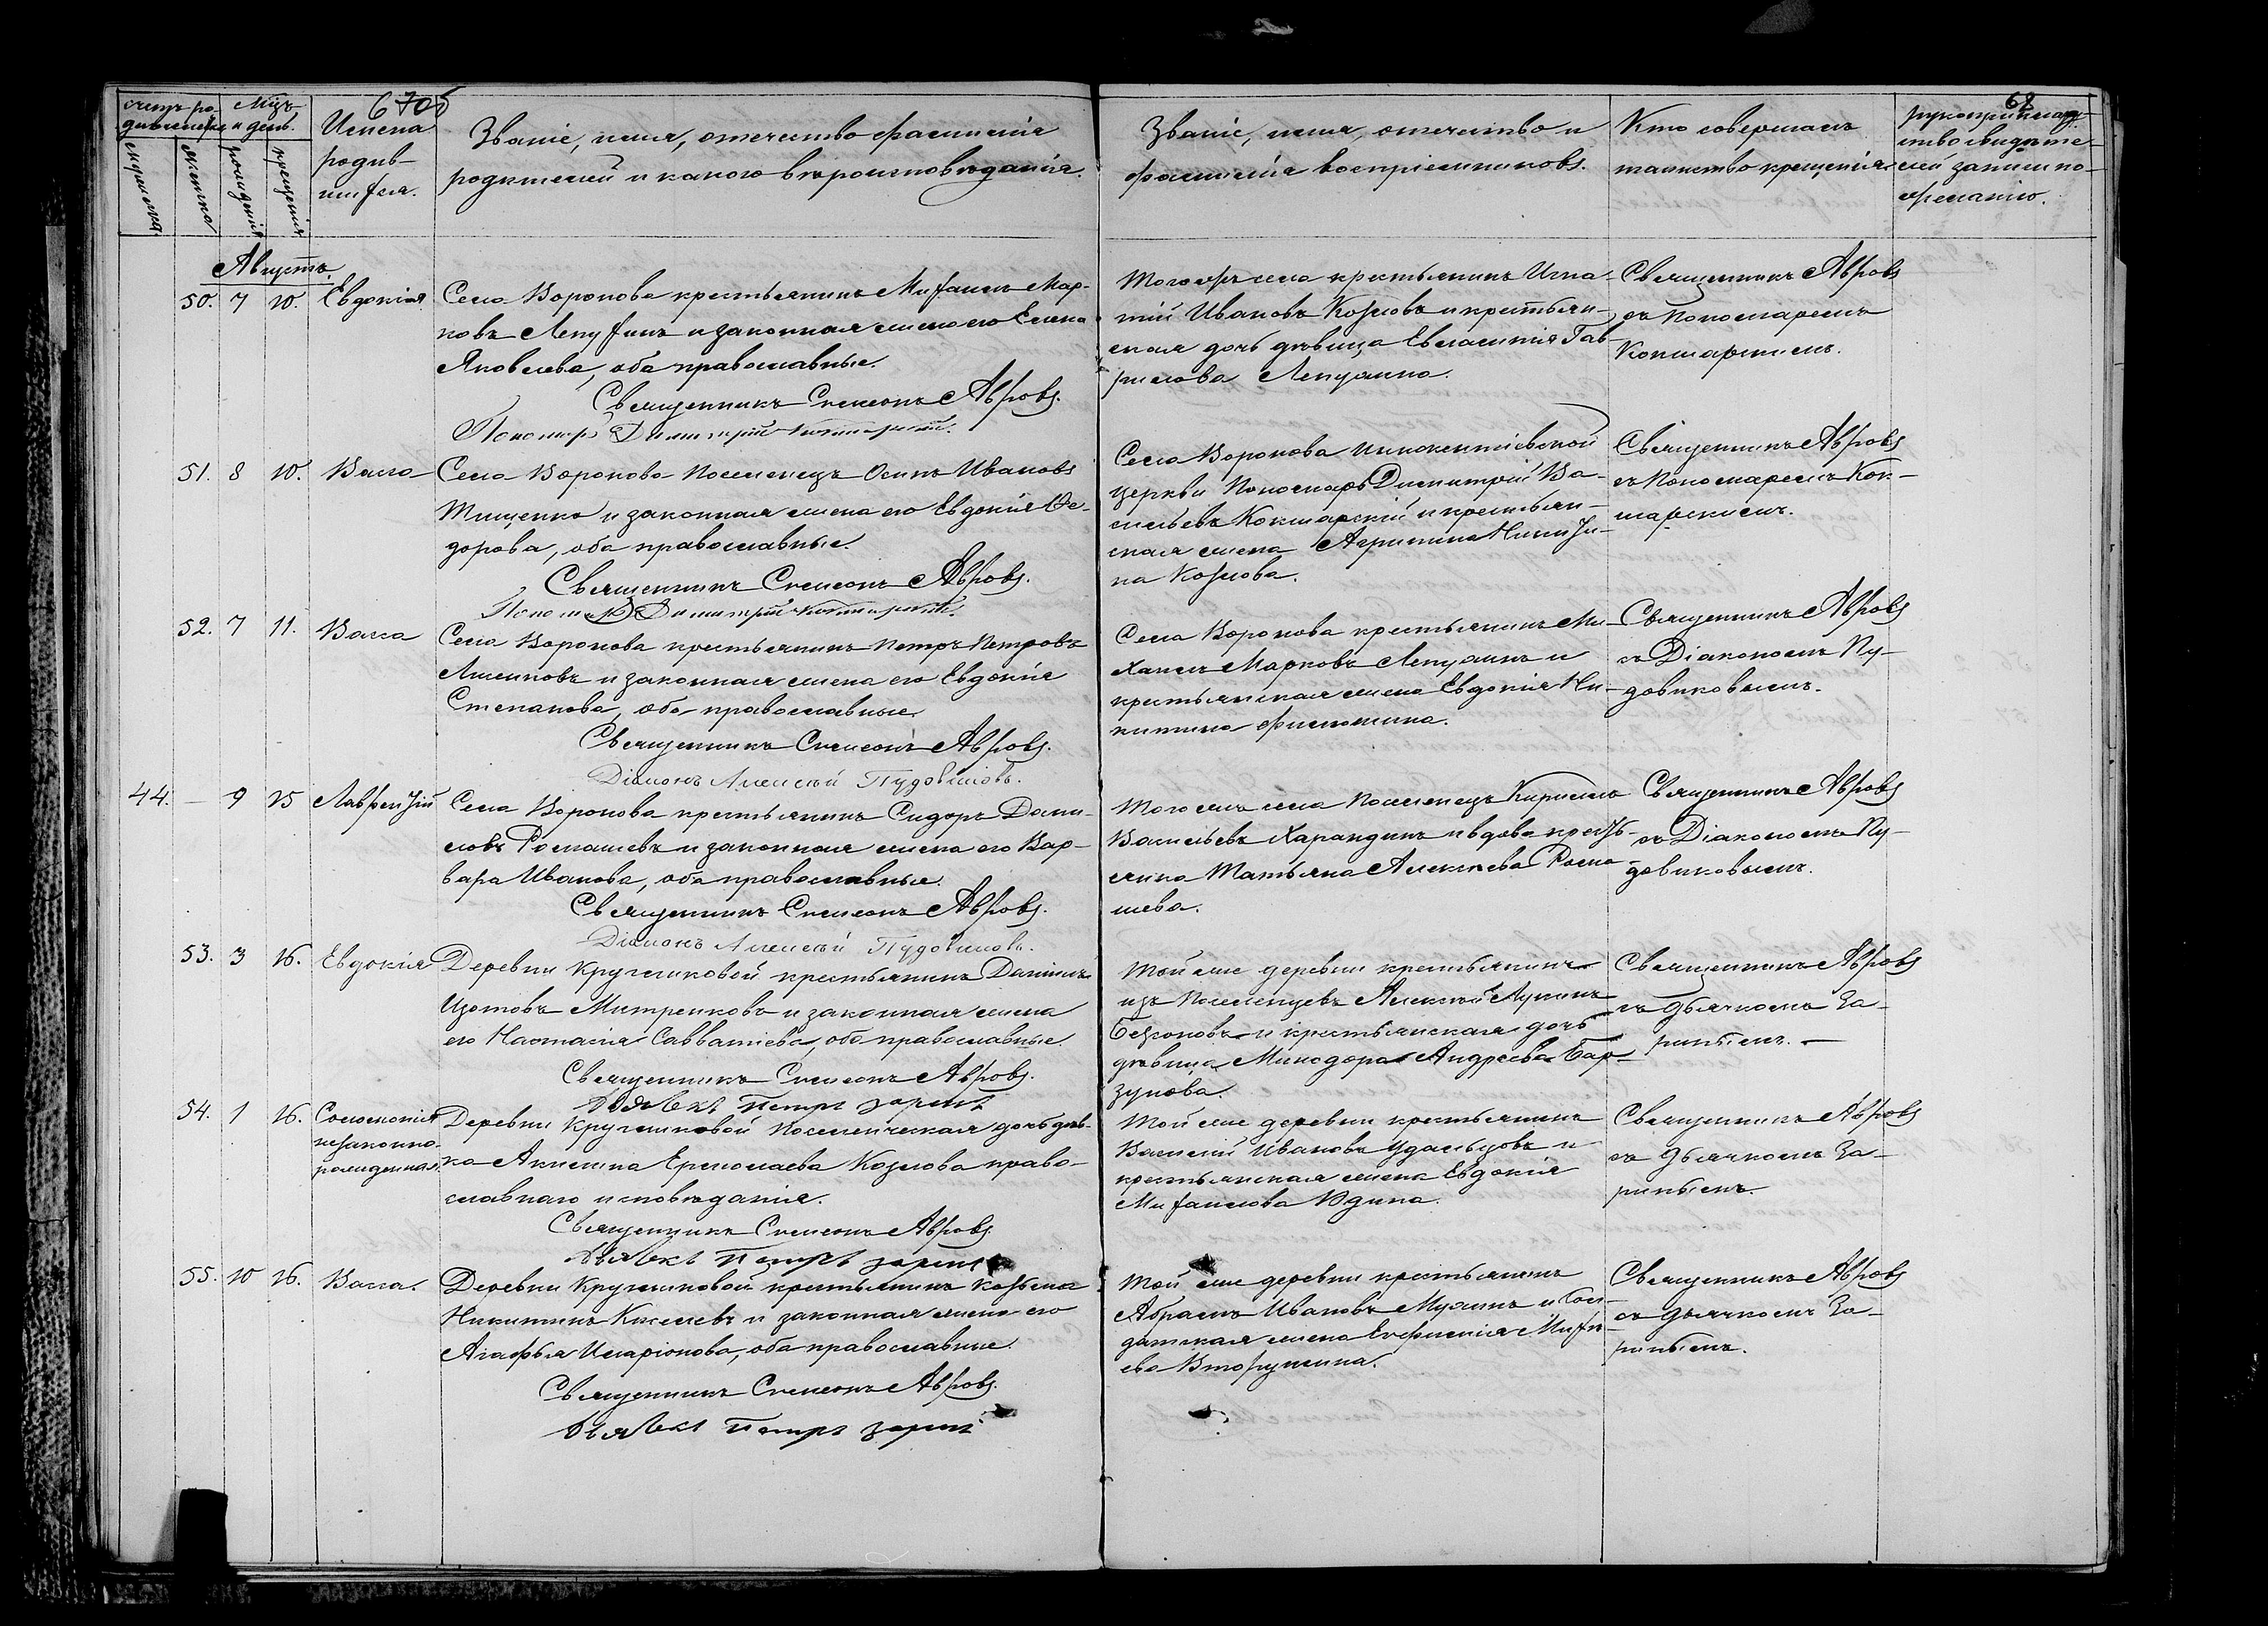 67об
68
Счетъ ро-
дившихся
Мцъ
и день.
мужеска.
женска
рожденія
крещенія
Имена
родив-
шихся.
Званіе, имя, отчество фамилія
родителей и какого вѣроисповѣданія.
Званіе, имя, отчество и
фамилія воспріемниковъ.
Кто совершалъ
таинство крещенія
рукоприклад-
ство свидѣте-
лей записи по
желанію.
Августъ.
50. 7 10. Евдокія
Села Воронова крестьянинъ Михаилъ Мар-
ковъ Лепухинъ и законная жена его Елена
Яковлева, оба православные.
Священникъ Симеонъ Авровъ.
Пономарь Димитрій Кокшарскій.
Тогоже села крестьянинъ Игна-
тій Ивановъ Козловъ и крестьян-
ская дочь дѣвица Евлампія Гав-
рилова Лепушина.
Священникъ Авровъ
съ Пономаремъ
Кокшарскимъ.
51. 8 10. Васса
Села Воронова Поселенецъ Осипъ Ивановъ
Тищенко и законная жена его Евдокія Ѳе-
дорова, оба православные.
Священникъ Симеонъ Авровъ.
Пономарь Димитрій Кокшарскій.
Села Воронова Иннокентіевской
церкви Пономарь Димитрій Ва-
сильевъ Кокшарскій и крестьян-
ская жена Агрипина Никити-
на Козлова.
Священникъ Авровъ
съ Пономаремъ Кок-
шарскимъ.
52. 7 11. Васса
Села Воронова крестьянинъ Петръ Петровъ
Лисинковъ и законная жена его Евдокія
Степанова, оба православные.
Священникъ Симеонъ Авровъ.
Діаконъ Алексѣй Пудовиковъ.
Села Воронова крестьянинъ Ми-
хаилъ Марковъ Лепушинъ и
крестьянская жена Евдокія Ни-
китина Филюшина.
Священникъ Авровъ
съ Діакономъ Пу-
довиковымъ.
44. — 9 15 Лаврентій
Села Воронова крестьянинъ Сидоръ Дани-
ловъ Ромашевъ и законная жена его Вар-
вара Иванова, оба православные.
Священникъ Симеонъ Авровъ.
Діаконъ Алексѣй Пудовиковъ.
Того же села Поселенецъ Кирилло
Васильевъ Харандинъ и вдова кресть-
янка Татьяна Алексѣева Рома-
шева.
Священникъ Авровъ
съ Діакономъ Пу-
довиковымъ.
53. 3 16. Евдокія
Деревни Кругликовой крестьянинъ Даніилъ
Изотовъ Митренковъ и законная жена
его Настасія Савватіева, оба православные.
Священникъ Симеонъ Авровъ.
Дьячекъ Петръ
Той же деревни крестьянинъ
изъ Поселенцевъ Алексѣй Лукинъ
Безроновъ и крестьянская дочь
дѣвица Минодора Андреева Бар-
зунова.
Священникъ Авровъ
съ Дьячкомъ За-
ринымъ. —
54. 1 16. Соломонія
незаконно-
рожденная.
Деревни Кругликовой Поселенческая дочь дѣв-
ка Акилина Ермолаева Козлова право-
славнаго исповѣданія.
Священникъ Симеонъ Авровъ.
Дьячекъ Петръ
Той же деревни крестьянинъ
Василій Ивановъ Удальцовъ и
крестьянская жена Евдокія
Михаилова Юдина.
Священникъ Авровъ
съ Дьячкомъ За-
ринымъ.
55. 10 16. Васса.
Деревни Кругликовой крестьянинъ Козьма
Никитинъ Киселевъ и законная жена его
Агафья Иларіонова, оба православные.
Священникъ Симеонъ Авровъ.
Дьячекъ Петръ
Той же деревни крестьянинъ
Абрамъ Ивановъ Мушинъ и Сол-
датская жена Евфимія Михе-
ева Вторушина.
Священникъ Авровъ
съ Дьячкомъ За-
ринымъ.